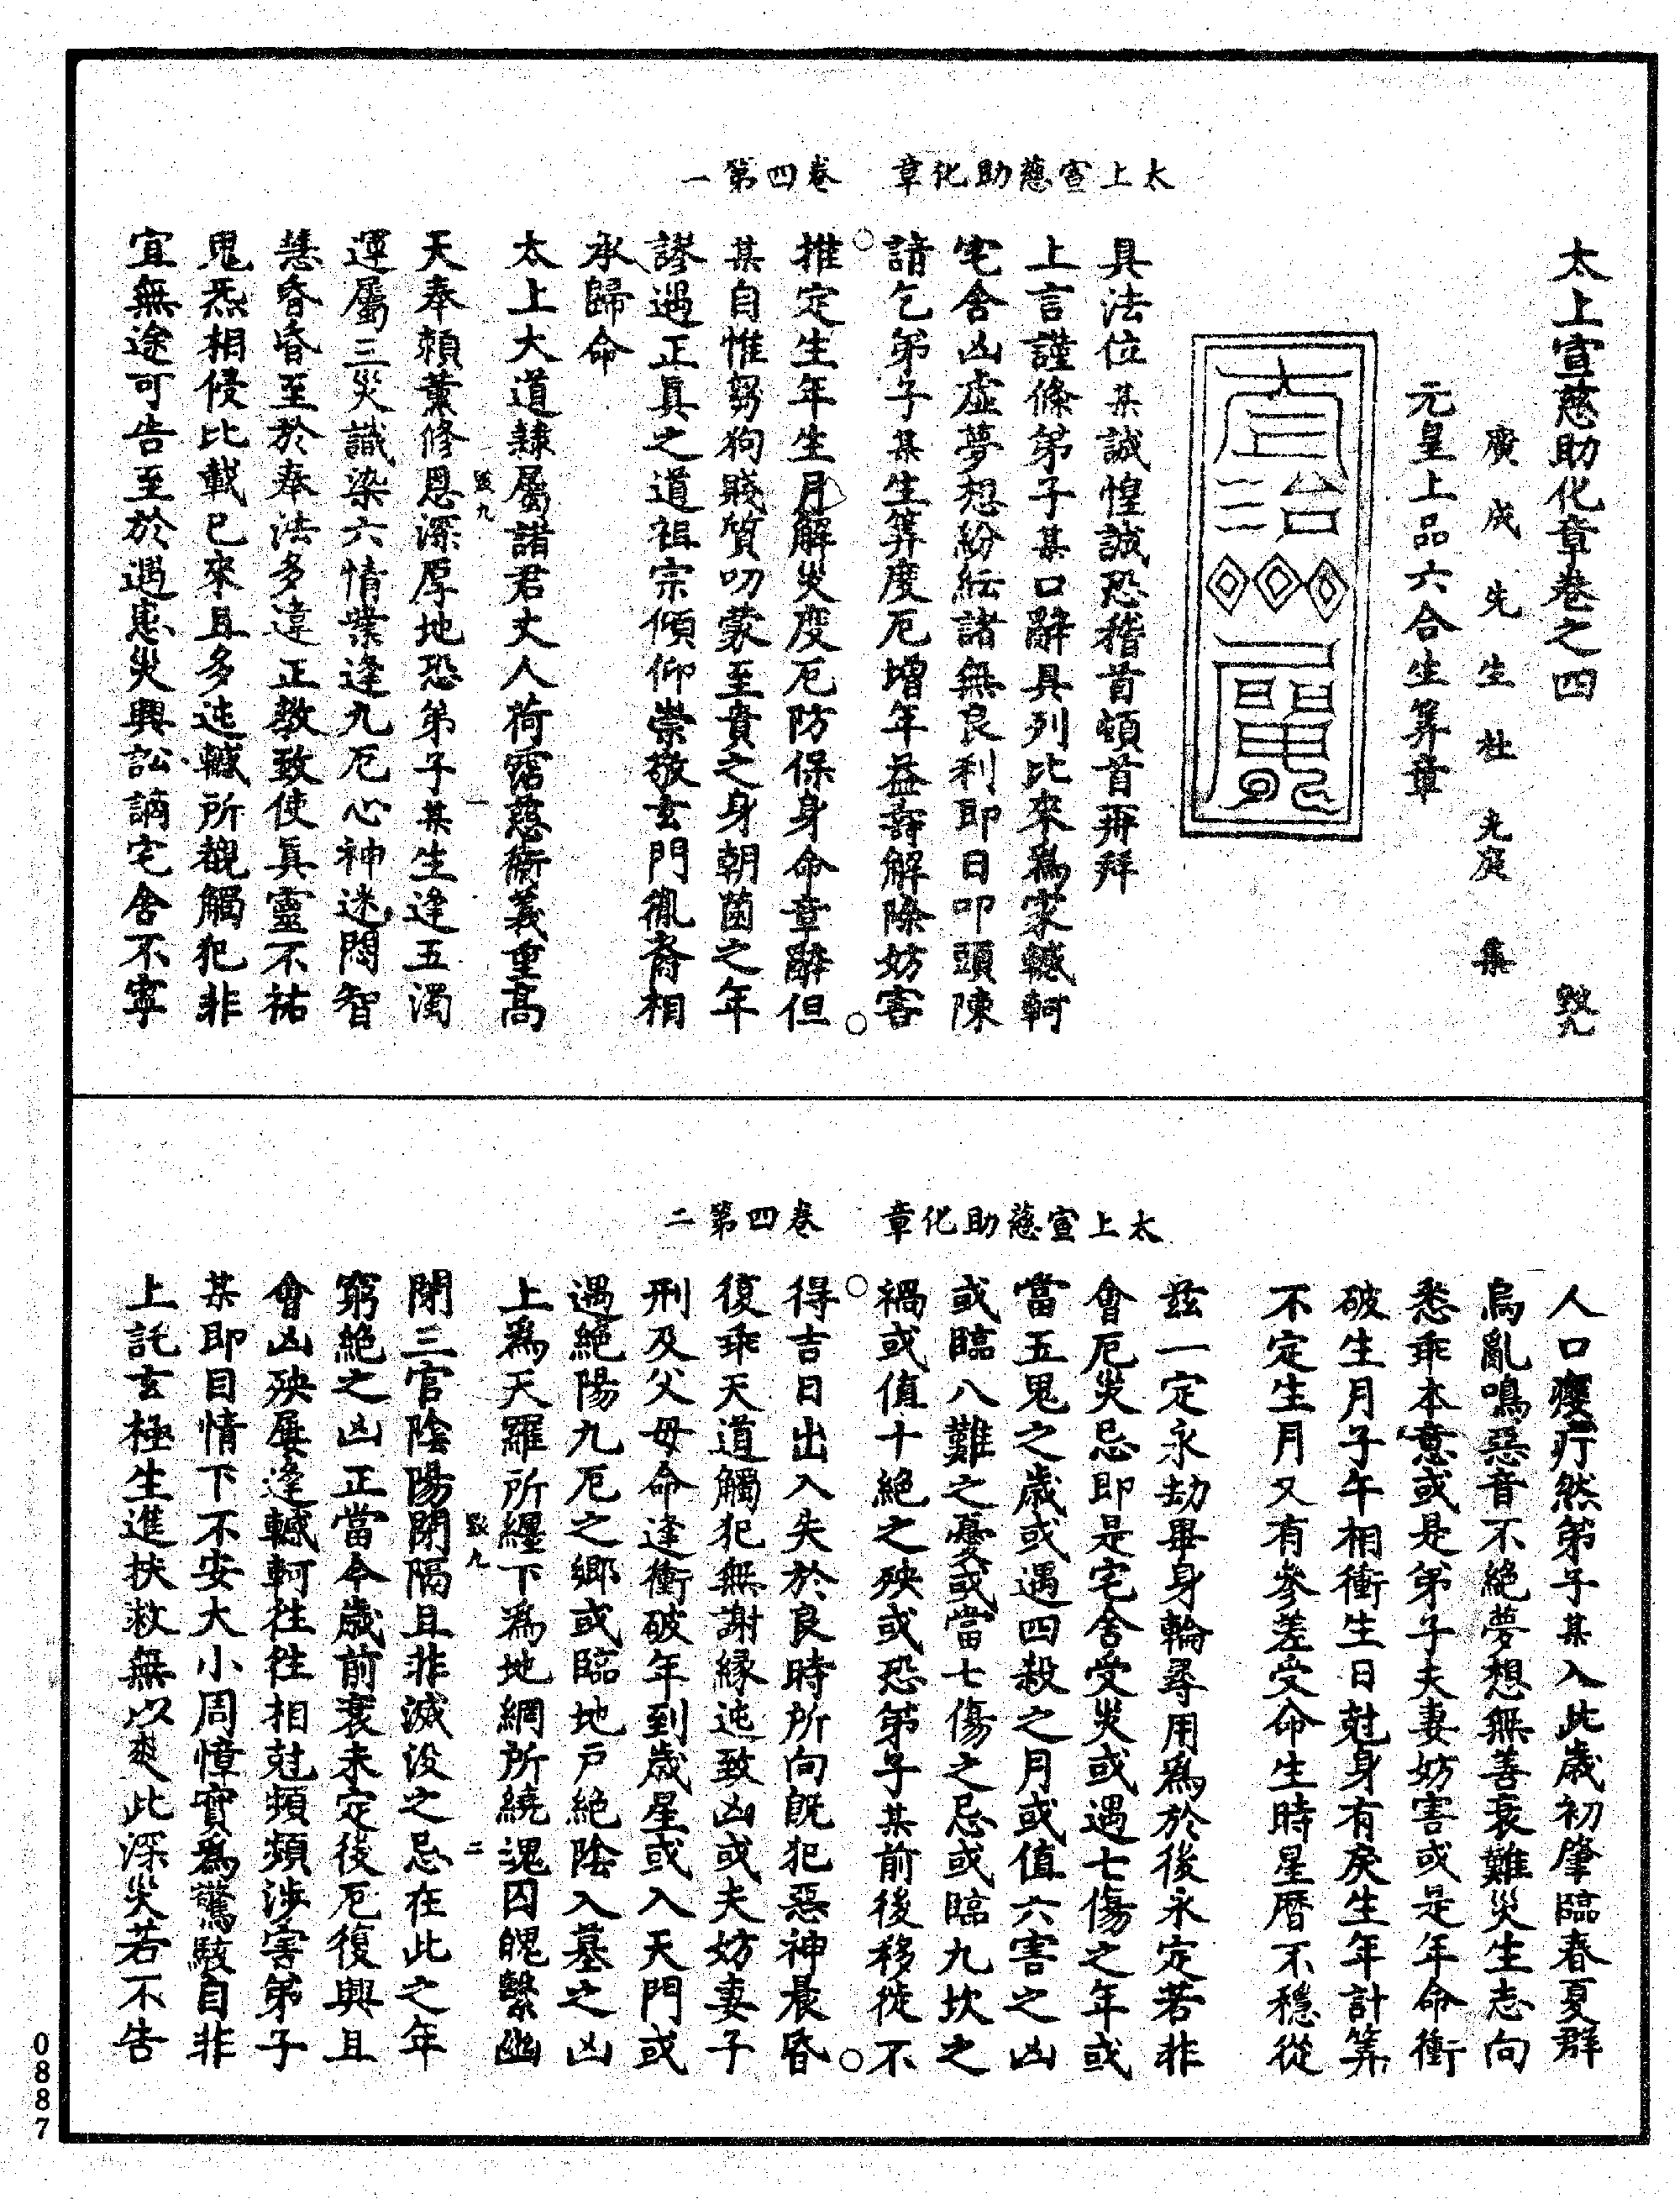 太上宣慈助化章卷之四 毀九
廣成先生杜光庭集
元皇上品六合生筭章
具法位某誠惶誠恐稽首頓首再拜
上言謹條弟子某口辭具列比來爲家轗軻
宅舍凶虛夢想紛紜諸無良利即日叩頭陳
請乞弟子某生筭度厄增年益壽解除妨害
太上宣慈助化章 卷四第一
推定生年生月解災度厄防保身命章辭但
某自惟芻狗賤質叨蒙至貴之身朝菌之年
謬遇正眞之道祖宗傾仰崇敬玄門胤裔相
承歸命
太上大道隷屬諸君丈人荷霑慈衞義重高
毀九 一
天奉頼薰修恩深厚地恐弟子某生逢五濁
運屬三災識染六情業逢九厄心神迷悶智
慧昏昏至於奉法多違正教致使眞靈不祐
鬼炁相侵比載已來且多迍轗所覩觸犯非
宜無途可告至於遇患災興訟謫宅舍不寧
人口癭疔然弟子某入此歲初肇臨春夏群
烏亂鳴惡音不絕夢想無善衰難災生志向
悉乖本意或是弟子夫妻妨害或是年命衝
破生月子午相衝生日尅身有灾生年計筭
不定生月又有參差受命生時星曆不穩從
茲一定永劫畢身輪尋用爲於後永定若非
會厄災忌即是宅舍受災或遇七傷之年或
當五鬼之歲或遇四殺之月或值六害之凶
或臨八難之憂或當七傷之忌或臨九坎之
禍或值十絕之殃或恐弟子某前後移徙不
太上宣慈助化章 卷四第二
得吉日出入失於良時所向旣犯惡神晨昏
復乖天道觸犯無謝緣迍致凶或夫妨妻子
刑及父母命逢衝破年到歲星或入天門或
遇絕陽九厄之鄉或臨地戶絕陰入墓之凶
上爲天羅所纏下爲地網所繞魂囚魄繫幽
毀九 二
閉三官陰陽閉隔且非滅没之忌在此之年
窮絕之凶正當今歲前衰未定後厄復興且
會凶殃屢逢轗軻往往相尅頻頻涉害弟子
某即目情下不安大小周慞實爲驚駭自非
上託玄極生進扶救無以爽此深災若不告
0887